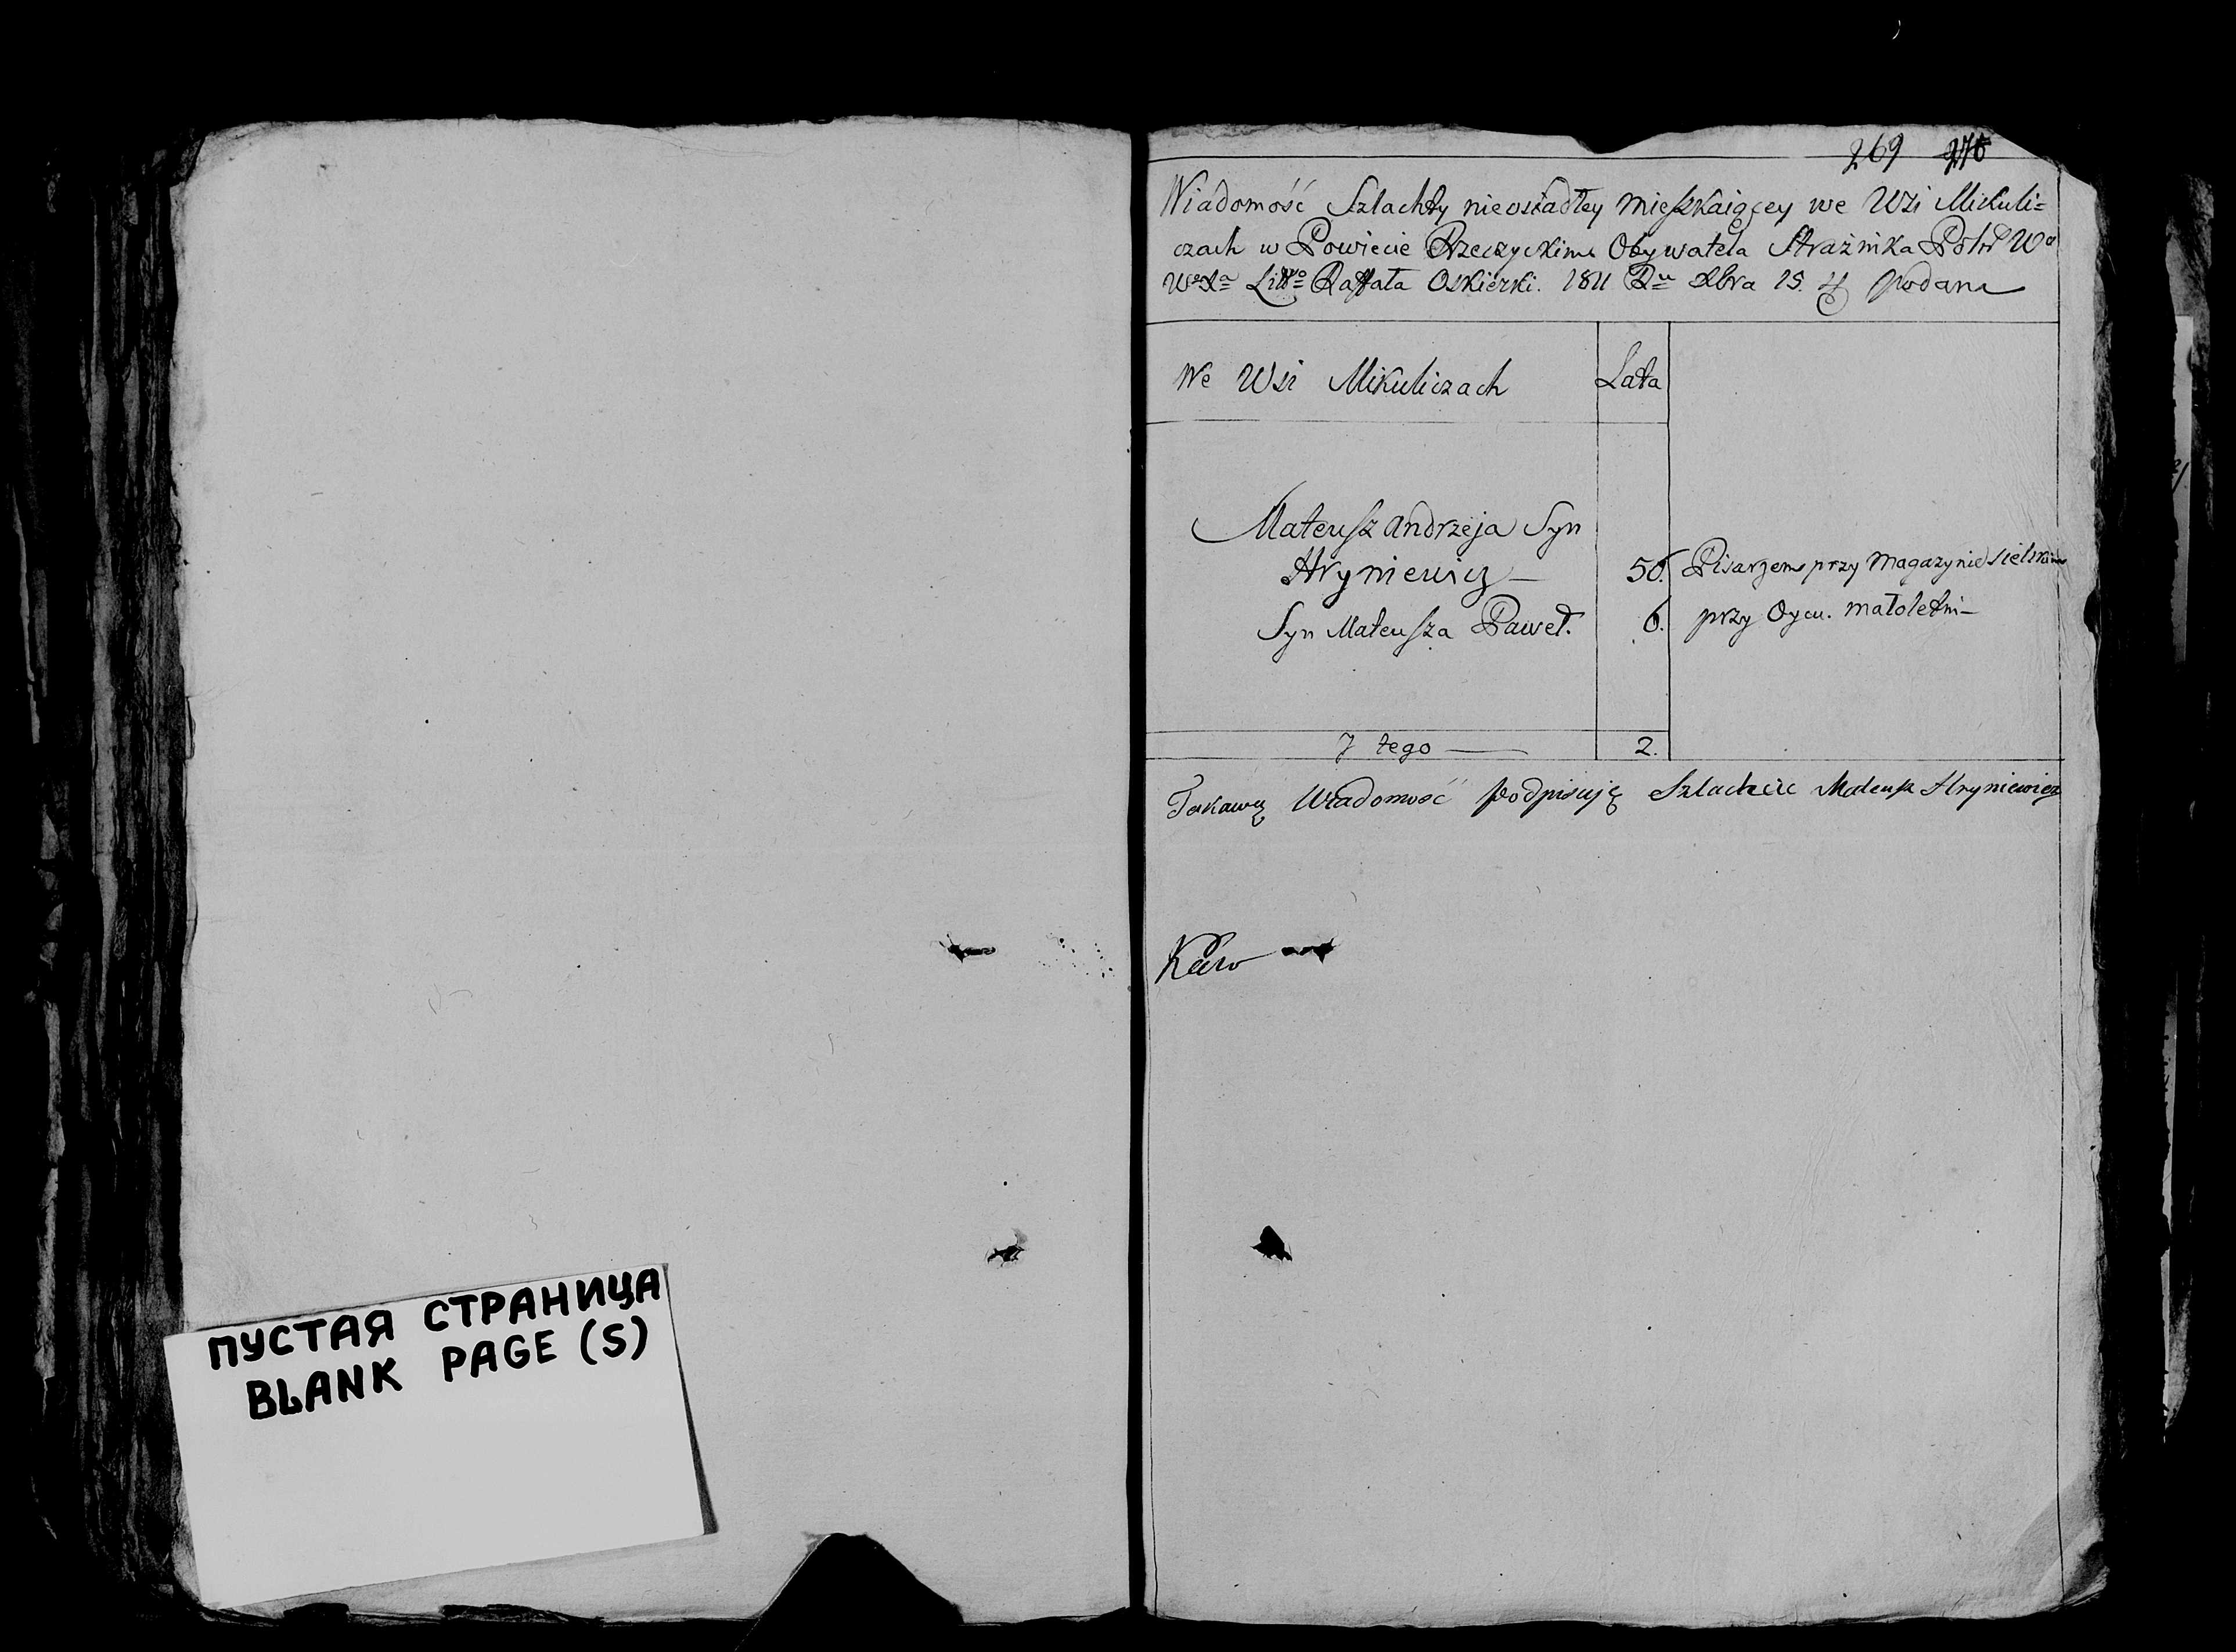 ПУСТАЯ СТРАНИЦА
BLANK PAGE (S)
269
Wiadomość Szlachty nieosiadłey mieszkaiącey we Wsi Mikuli=
czach w Powiecie Rzeczyckim Obywatela Strażnika
Litto Raffała Oskierki. 1811 Ru Xbra 15. podana
We Wsi Mikuliczach Lata
Mateusz Andrzeja Syn
Hryniewicz — 56. Pisarzem przy Magazynie sielskim
Syn Mateusza Paweł. 6. przy Oycu. małoletni —
J tego — 2.
Takawą Wiadomość podpisuję Szlachcic Mateusz Hryniewicz